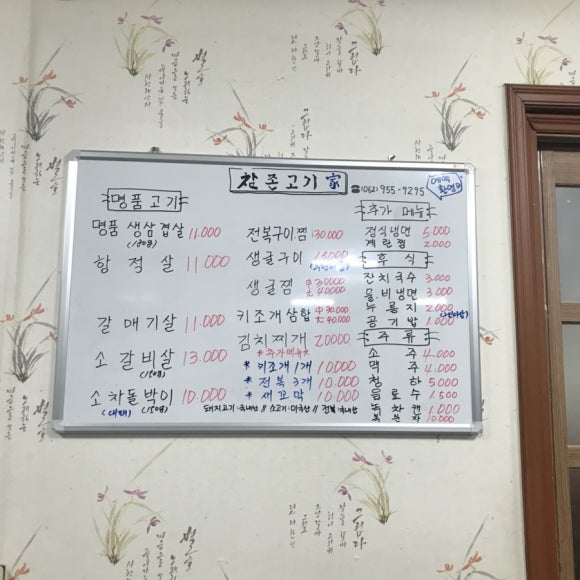 참존고기 家
☎(062)955-9295
예약 환영
명품고기
명품 생삼겹살 11.000
(180g)
항정살 11.000
갈매기살 11.000
소갈비살 13.000
(150g)
소차돌박이 10.000
(대패) (150g)
전복구이찜 130.000
생굴구이 15.000
생굴찜 中 30000
大 40000
키조개삼합 中 30.000
大 40.000
김치찌개 7.000
*추가메뉴*
* 키조개 1개 10.000
* 전복 3개 10.000
* 새꼬막 10.000
돼지고기:국내산 // 소고기:미국산 // 전복:국내산
추가 메뉴
점식냉면 5.000
계란찜 2.000
후식
잔치국수 3.000
물.비냉면 3.000
누룽지 2.000
공기밥 1.000
주류
소주 4.000
맥주 4.000
청하 5.000
음료수 1.500
녹차캔 1.000
복분자 10.000